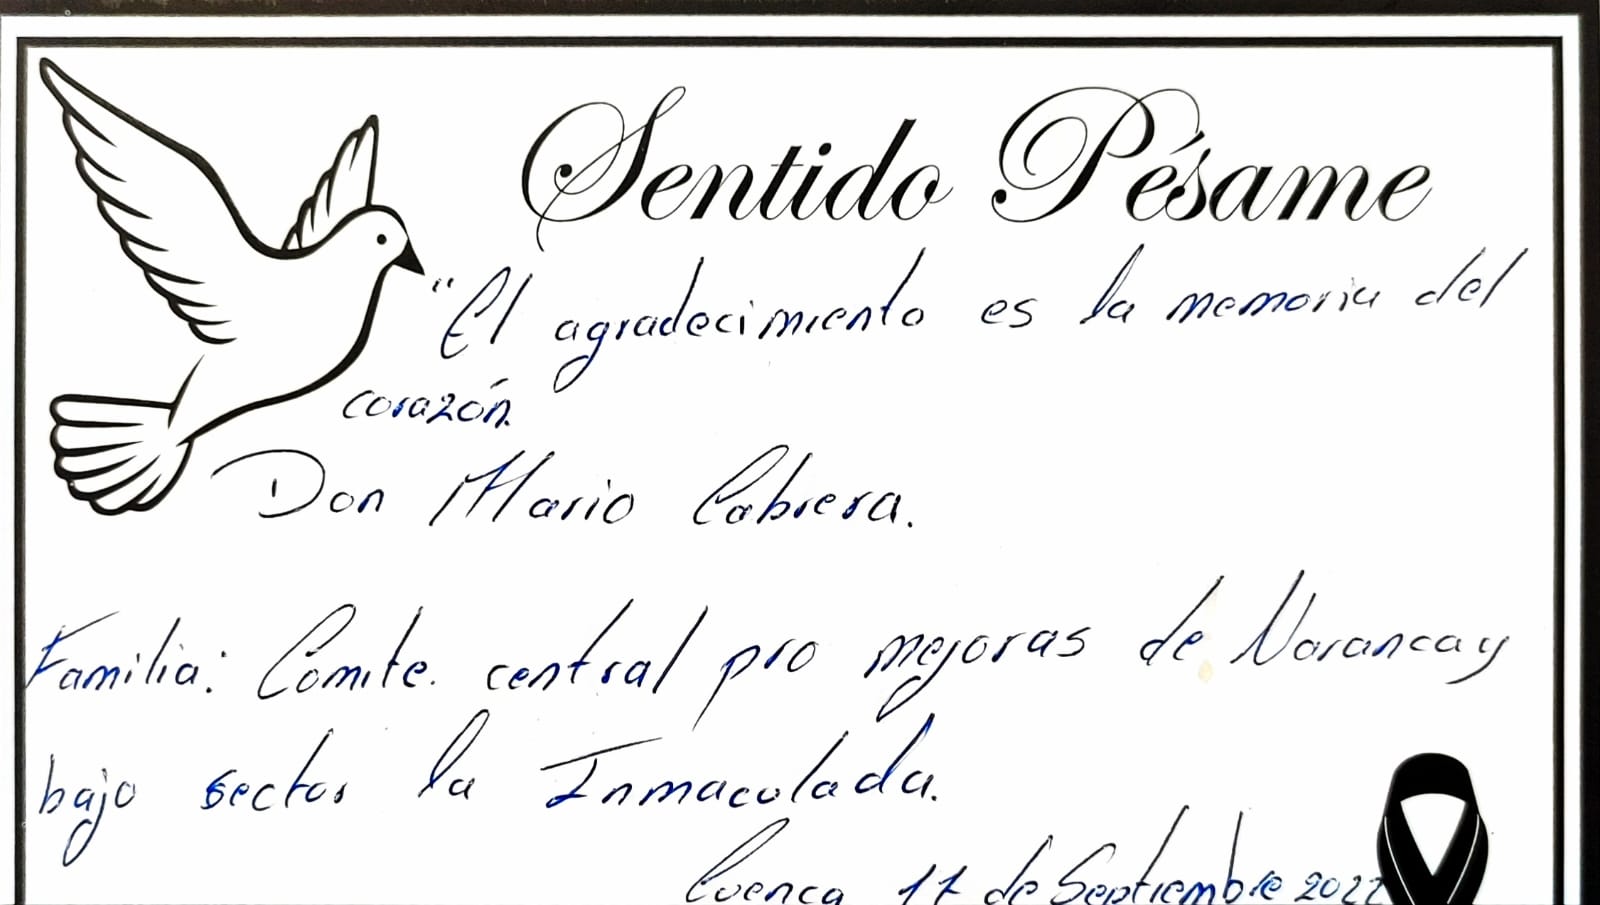 Sentido Pésame
"El agradecimiento es la memoria del
corazón.
Don Mario Cabrera.
Familia: Comite. central pro mejoras de Narancay
bajo sector la Inmaculada.
Cuenca 17 de Septiembre 2022